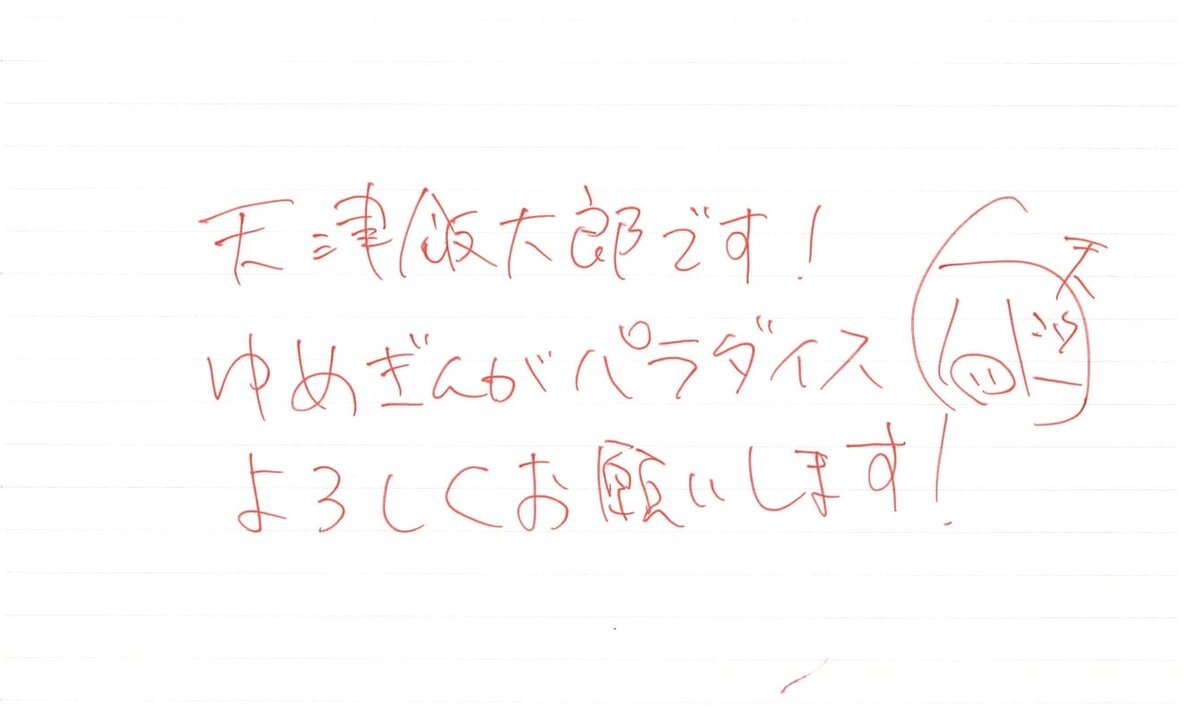 天津飯大郎です!
ゆめぎんがパラダイス
よろしくお願いします!
天